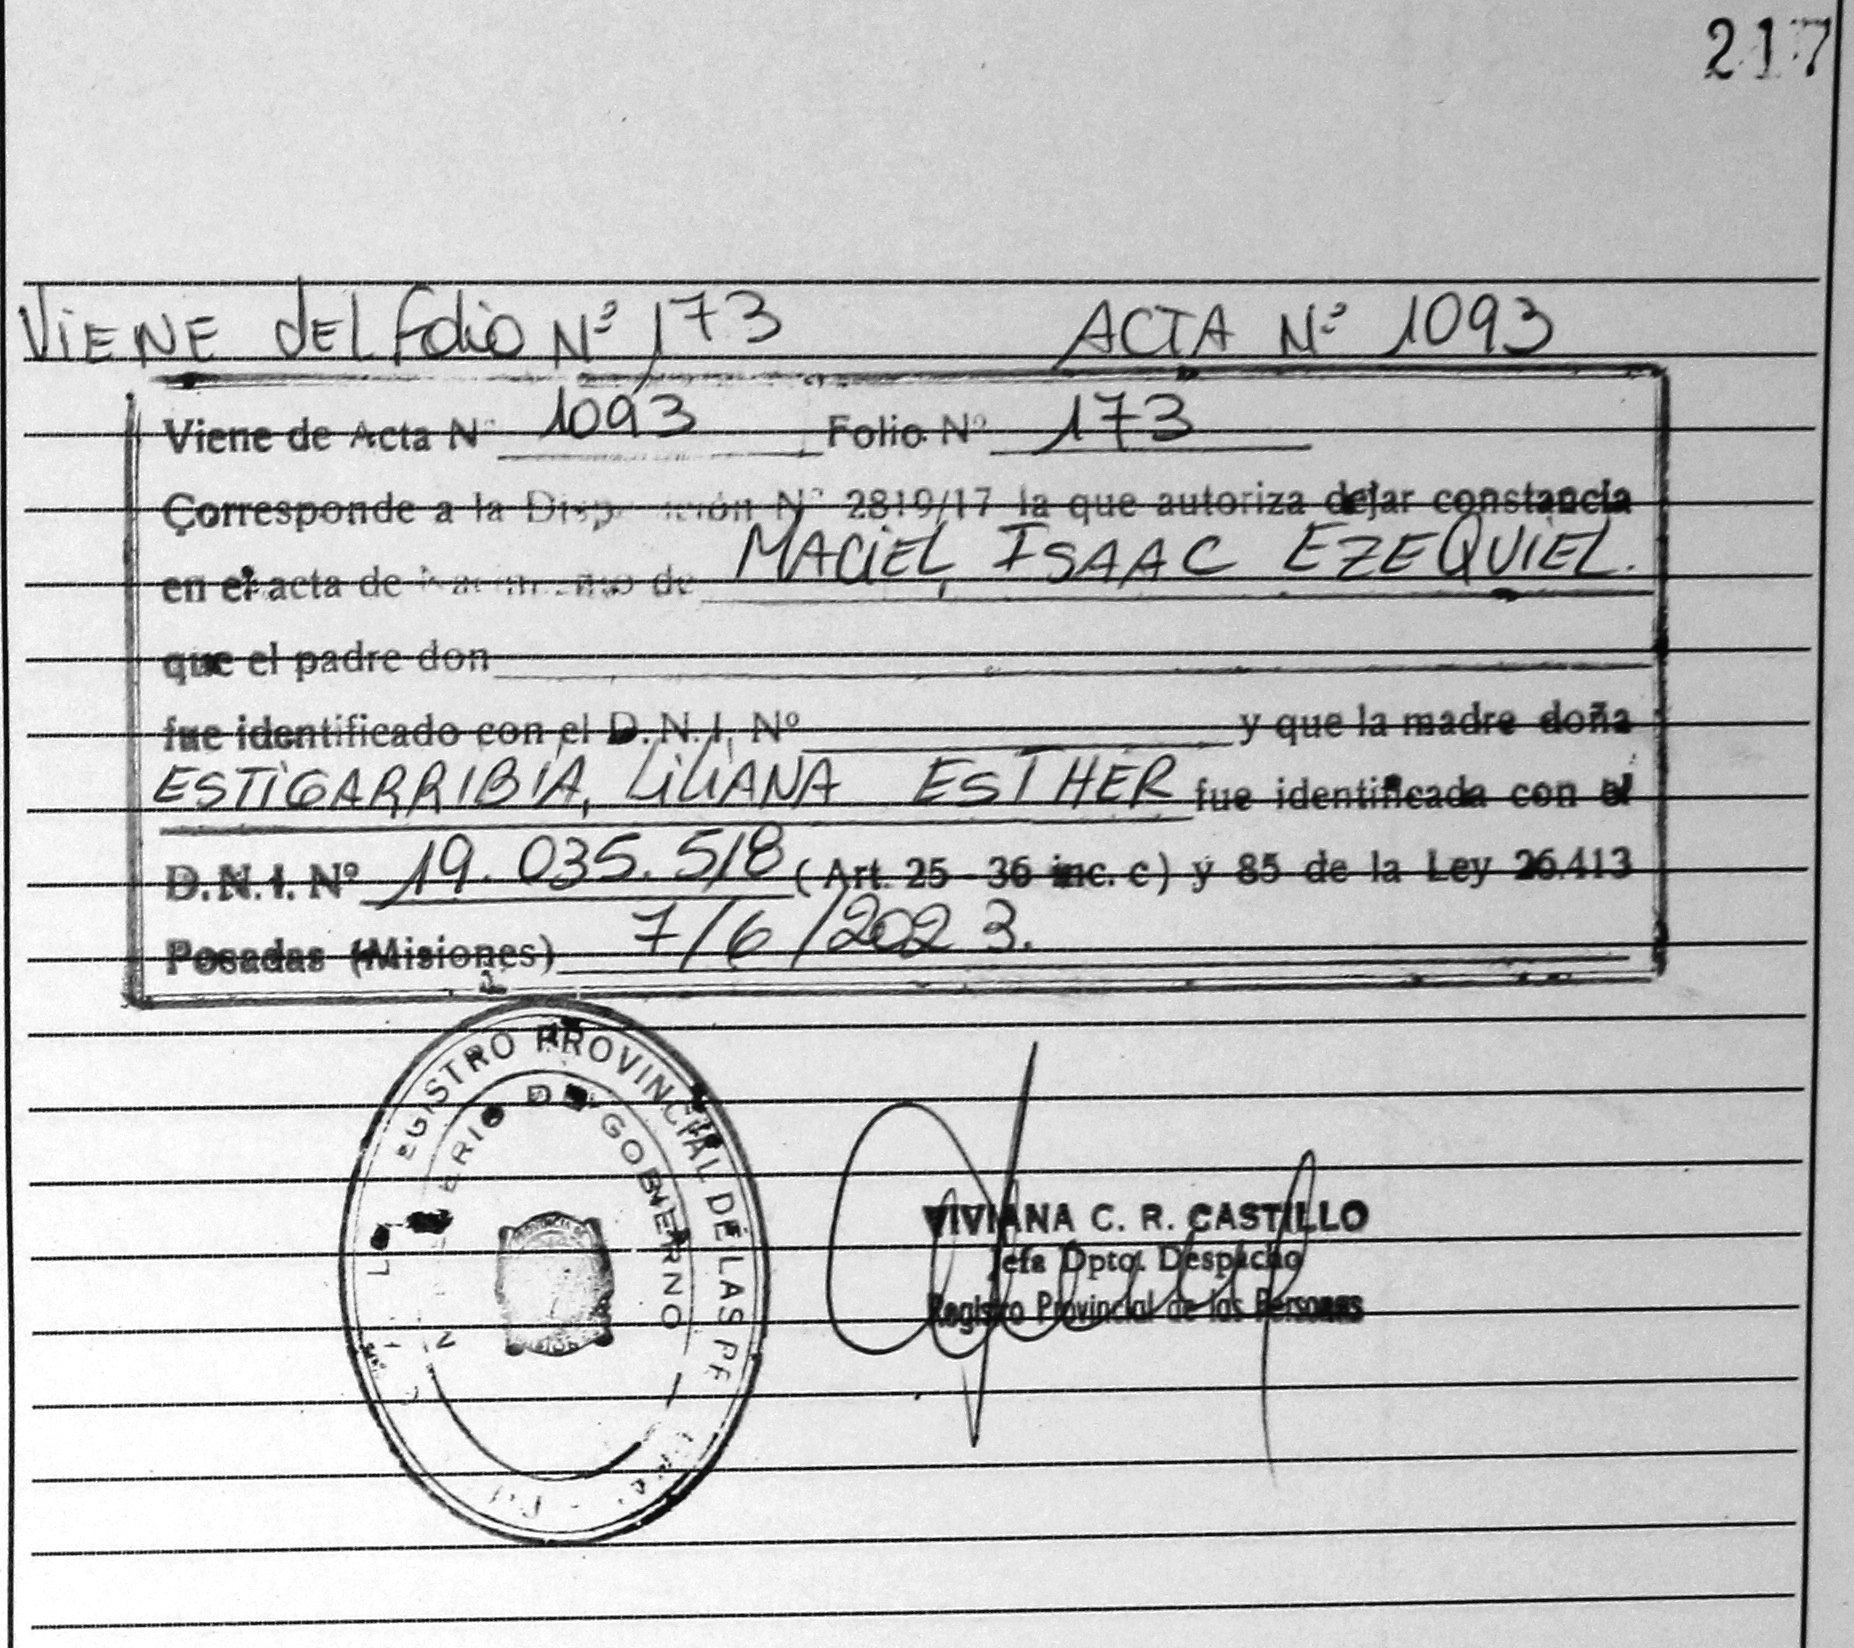 217
ViENE dEL folio Nº 173 ACTA Nº 1093
Viene de Acta Nº 1093 Folio Nº 173
Corresponde a la Disposición Nº 2819/17 la que autoriza dejar constancia
en el acta de Nacimiento de MACiEL, ISAAC EZEQUIEL.
que el padre don
fue identificado con el D.N.I. Nº y que la madre doña
ESTiGARRIBIA, LiLiANA ESTHER fue identificada con el
D.N.I. Nº 19.035.518 (Art. 25 - 36 inc. c) y 85 de la Ley 26.413
Posadas (Misiones) 7/6/2023.
REGISTRO PROVINCIAL DE LAS
DE GOBIERNO
VIVIANA C. R. CASTILLO
Jefa Dpto. Despacho
Registro Provincial de las Personas